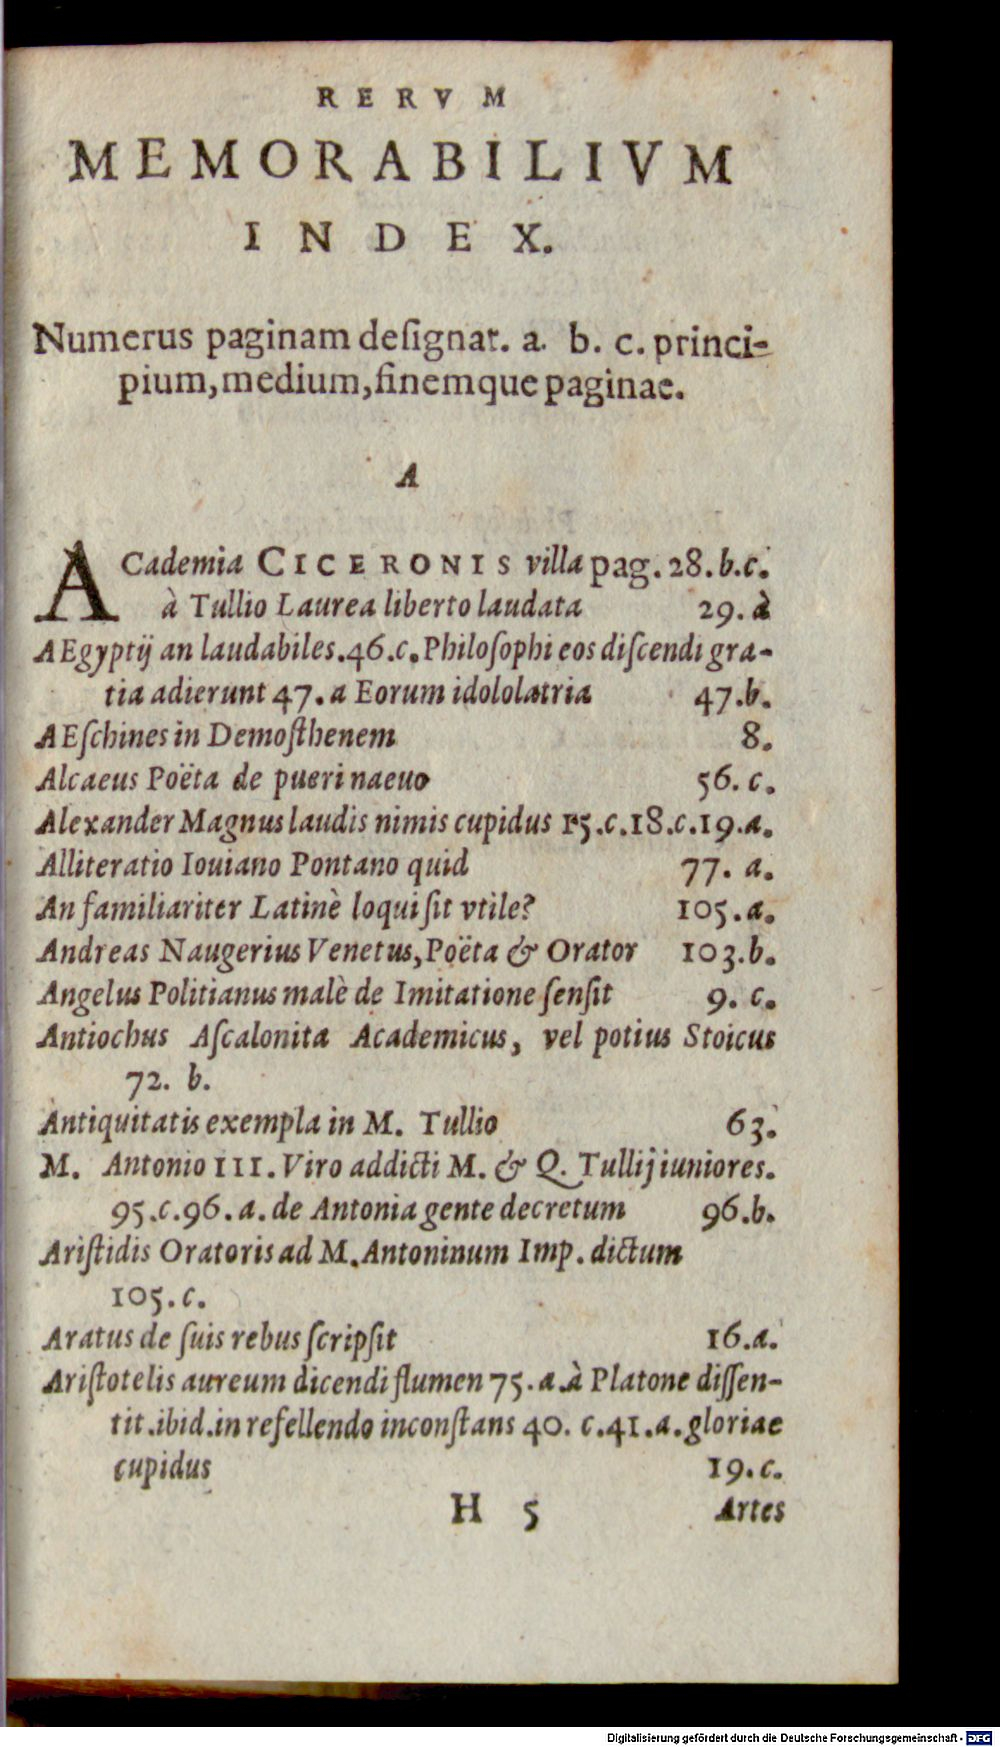 RERVM
MEMORABILIVM
INDEX.
Numerus paginam deſignat. a. b. c. princi-
pium, medium, finemque paginae.
A
ACademia CICERONIS villa pag. 28. b. c.
à Tullio Laurea liberto laudata 29. à
AEgyptij an laudabiles. 46. c. Philoſophi eos diſcendi gra-
tia adierunt 47. a Eorum idololatria 47. b.
AEſchines in Demoſthenem 8.
Alcaeus Poëta de pueri naeuo 56. c.
Alexander Magnus laudis nimis cupidus 15. c. 18. c. 19. a.
Alliteratio Iouiano Pontano quid 77. a.
An familiariter Latinè loqui ſit vtile? 105. a.
Andreas Naugerius Venetus, Poëta & Orator 103. b.
Angelus Politianus malè de Imitatione ſenſit 9. c.
Antiochus Aſcalonita Academicus, vel potius Stoicus
72. b.
Antiquitatis exempla in M. Tullio 63.
M. Antonio III. Viro addicti M. & Q. Tullij iuniores.
95. c. 96. a. de Antonia gente decretum 96. b.
Ariſtidis Oratoris ad M. Antoninum Imp. dictum
105. c.
Aratus de ſuis rebus ſcripſit 16. a.
Ariſtotelis aureum dicendi flumen 75. a. à Platone diſſen-
tit. ibid. in refellendo inconſtans 40. c. 41. a. gloriae
cupidus 19. c.
H 5 Artes
Digitalisierung gefördert durch die Deutsche Forschungsgemeinschaft - DFG